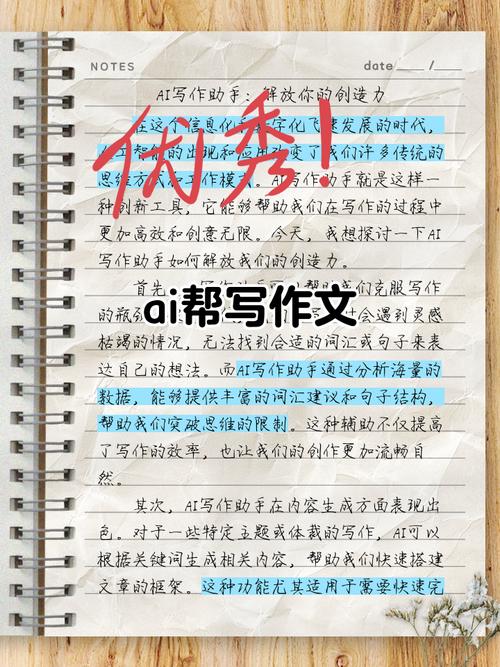 NOTES
date ___ /___
AI写作助手：解放你的创造力
在这个信息化和数字化飞速发展的时代，
人工智能的出现和应用改变了我们许多传统的
思维方式和工作模式。AI写作助手就是这样一
种创新工具，它能够帮助我们在写作的过程中
更加高效和创意无限。今天，我想探讨一下AI
写作助手如何解放我们的创造力。
优秀！
首先，写作助手可以帮助我们克服写作
ai帮写作文
的瓶
会遇到灵感
枯竭的情况，无法找到合适的词汇或句子来表
达自己的想法。而AI写作助手通过分析海量的
数据，能够提供丰富的词汇建议和句子结构，
帮助我们突破思维的限制。这种辅助不仅提高
了写作的效率，也让我们的创作更加流畅自
然。
其次，AI写作助手在内容生成方面表现出
色。对于一些特定主题或体裁的写作，AI可以
根据关键词生成相关内容，帮助我们快速搭建
文章的框架。这种功能尤其适用于需要快速完